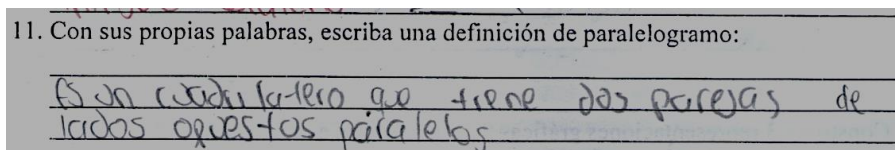 11. Con sus propias palabras, escriba una definición de paralelogramo:
Es un cuadrilatero que tiene dos parejas de
lados opuestos paralelos